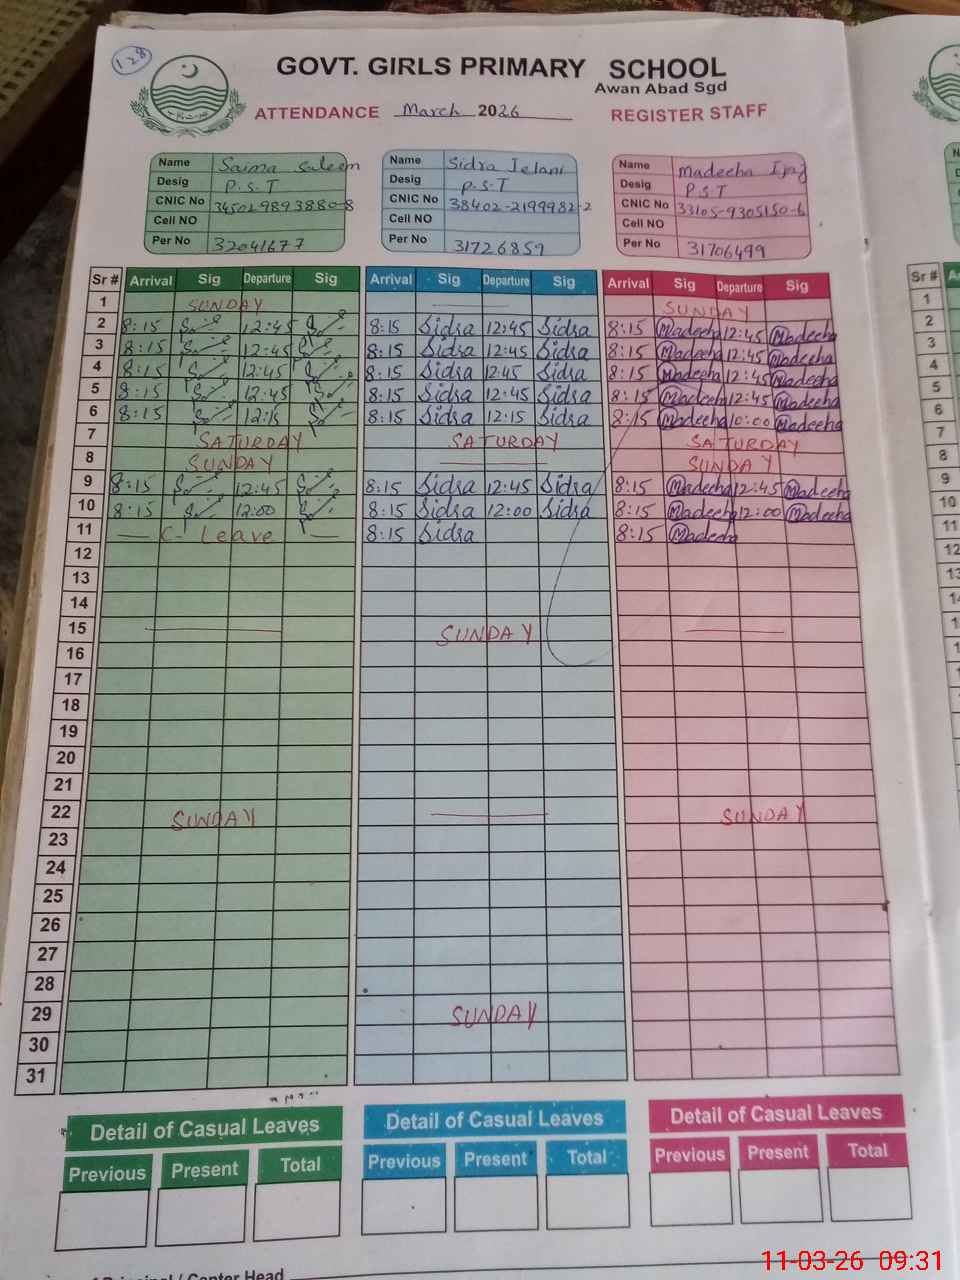 128
GOVT. GIRLS PRIMARY SCHOOL
Awan Abad Sgd
ATTENDANCE March 2026 REGISTER STAFF
Name Saima Saleem Name Sidra Jelani Name Madeeha Ijaz
Desig P.S.T Desig P.S.T Desig P.S.T
CNIC No CNIC No 38402-2199982-2 CNIC No 33105-9305150-6
Cell NO Cell NO Cell NO
Per No 32041677 Per No 31726859 Per No 31706499
Sr # Arrival Sig Departure Sig Arrival Sig Departure Sig Arrival Sig Departure Sig Sr #
1 SUNDAY SUNDAY 1
2 8:15 12:45 8:15 Sidra 12:45 Sidra 8:15 Madeeha 12:45 Madeeha 2
3 8:15 12:45 8:15 Sidra 12:45 Sidra 8:15 Madeeha 12:45 Madeeha 3
4 8:15 12:45 8:15 Sidra 12:45 Sidra 8:15 Madeeha 12:45 Madeeha 4
5 8:15 12:45 8:15 Sidra 12:45 Sidra 8:15 Madeeha 12:45 Madeeha 5
6 8:15 12:15 8:15 Sidra 12:15 Sidra 8:15 Madeeha 10:00 Madeeha 6
7 SATURDAY SATURDAY SATURDAY 7
8 SUNDAY SUNDAY 8
9 8:15 12:45 8:15 Sidra 12:45 Sidra 8:15 Madeeha 12:45 Madeeha 9
10 8:15 12:00 8:15 Sidra 12:00 Sidra 8:15 Madeeha 12:00 Madeeha 10
11 C- Leave 8:15 Sidra 8:15 Madeeha 11
12 12
13 13
14
15 SUNDAY
16
17
18
19
20
21
22 SUNDAY SUNDAY
23
24
25
26
27
28
29 SUNDAY
30
31
Detail of Casual Leaves Detail of Casual Leaves Detail of Casual Leaves
Previous Present Total Previous Present Total Previous Present Total
Center Head
11-03-26 09:31